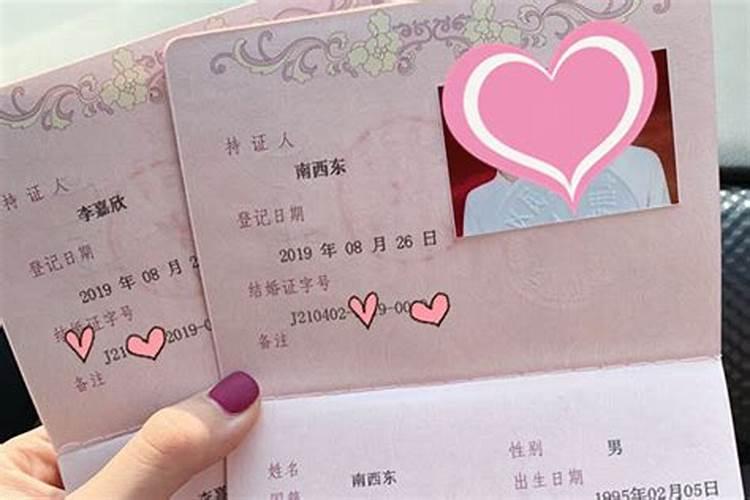 持证人
李嘉欣
登记日期
2019 年 08 月 2
结婚证字号
J21 2019-0
备注
持证人
南西东
登记日期
2019 年 08 月 26 日
结婚证字号
J210402- 9-00
备注
姓名 南西东 性别 男
出生日期 1995年02月05日